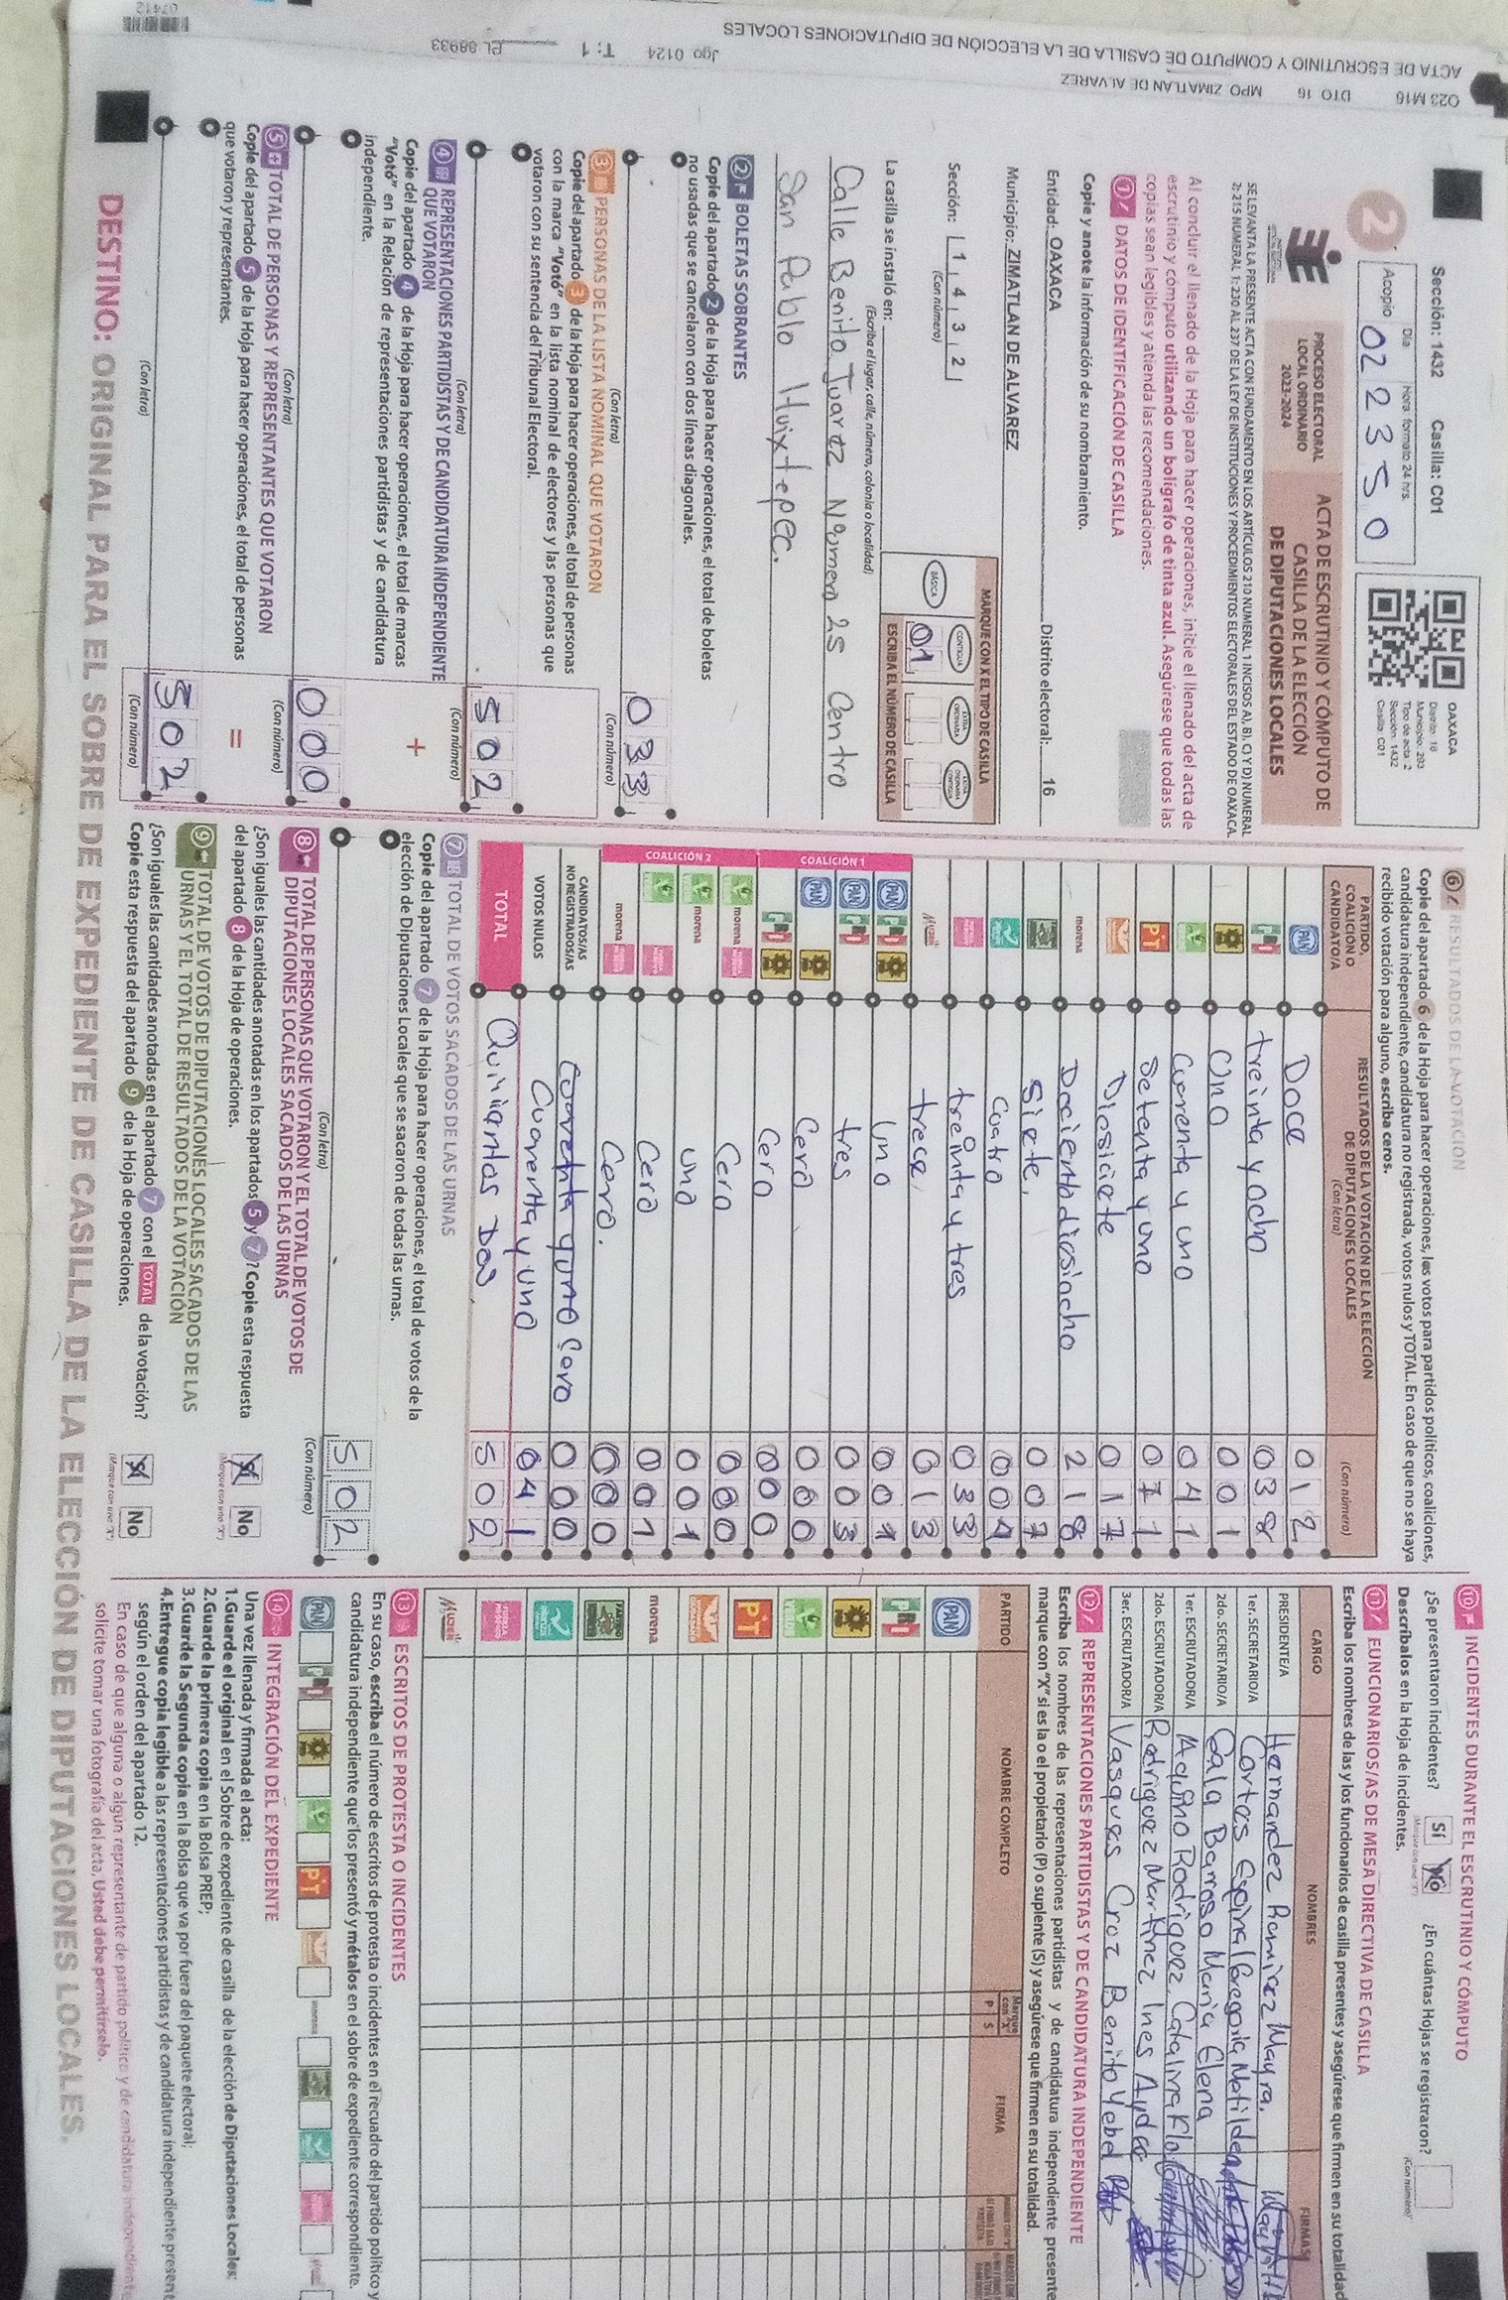 023 M16 DTO 16 MPO ZIMATLAN DE ALVAREZ
ACTA DE ESCRUTINIO Y CÓMPUTO DE CASILLA DE LA ELECCIÓN DE DIPUTACIONES LOCALES
Jgo 0124 T: 1 PL 88933
07412
Sección: 1432 Casilla: C01
2
Día Hora, formato 24 hrs.
Acopio 02 23 50
OAXACA
Distrito: 16
Municipio: 293
Tipo de acta: 2
Sección: 1432
Casilla: C01
PROCESO ELECTORAL
LOCAL ORDINARIO
2023-2024
ACTA DE ESCRUTINIO Y CÓMPUTO DE
CASILLA DE LA ELECCIÓN
DE DIPUTACIONES LOCALES
Al concluir el llenado de la Hoja para hacer operaciones, inicie el llenado del acta de
escrutinio y cómputo utilizando un bolígrafo de tinta azul. Asegúrese que todas las
copias sean legibles y atienda las recomendaciones.
1 DATOS DE IDENTIFICACIÓN DE CASILLA
Copie y anote la información de su nombramiento.
Entidad: OAXACA Distrito electoral: 16
Municipio: ZIMATLAN DE ALVAREZ
Sección: 1 4 3 2
(Con número)
MARQUE CON X EL TIPO DE CASILLA
BÁSICA CONTIGUA
ESCRIBA EL NÚMERO DE CASILLA
01
La casilla se instaló en:
(Escriba el lugar, calle, número, colonia o localidad)
Calle Benito Juarez Número 25 Centro
San Pablo Huixtepec.
2 BOLETAS SOBRANTES
Copie del apartado 2 de la Hoja para hacer operaciones, el total de boletas
no usadas que se cancelaron con dos líneas diagonales.
033
(Con letra) (Con número)
3 PERSONAS DE LA LISTA NOMINAL QUE VOTARON
Copie del apartado 3 de la Hoja para hacer operaciones, el total de personas
con la marca "Votó" en la lista nominal de electores y las personas que
votaron con su sentencia del Tribunal Electoral.
502
(Con letra) (Con número)
4 REPRESENTACIONES PARTIDISTAS Y DE CANDIDATURA INDEPENDIENTE
QUE VOTARON
Copie del apartado 4 de la Hoja para hacer operaciones, el total de marcas
"Votó" en la Relación de representaciones partidistas y de candidatura
independiente.
+
000
(Con letra) (Con número)
5 TOTAL DE PERSONAS Y REPRESENTANTES QUE VOTARON
Copie del apartado 5 de la Hoja para hacer operaciones, el total de personas
que votaron y representantes.
=
502
(Con letra) (Con número)
6 RESULTADOS DE LA VOTACIÓN
Copie del apartado 6 de la Hoja para hacer operaciones, los votos para partidos políticos, coaliciones,
candidatura independiente, candidatura no registrada, votos nulos y TOTAL. En caso de que no se haya
recibido votación para alguno, escriba ceros.
PARTIDO,
COALICIÓN O
CANDIDATO/A
RESULTADOS DE LA VOTACIÓN DE LA ELECCIÓN
DE DIPUTACIONES LOCALES
(Con letra)
(Con número)
PAN Doce 012
PRI treinta y ocho 038
Uno 001
VERDE Cuarenta y uno 041
PT Setenta y uno 071
Diesiciete 017
morena Docientodiesiocho 218
Siete. 007
Cuatro 004
treinta y tres 033
Mujer trece 013
COALICIÓN 1
PAN PRI Uno 001
PAN PRI tres 003
PAN Cero 000
PRI Cero 000
COALICIÓN 2
morena Cero 000
morena Uno 001
Cero 001
morena Cero. 000
CANDIDATOS/AS
NO REGISTRADOS/AS Cuarenta y uno Cero 000
VOTOS NULOS Cuarenta y uno 041
TOTAL Quinientos Dos 502
7 TOTAL DE VOTOS SACADOS DE LAS URNAS
Copie del apartado 7 de la Hoja para hacer operaciones, el total de votos de la
elección de Diputaciones Locales que se sacaron de todas las urnas.
502
(Con letra) (Con número)
8 TOTAL DE PERSONAS QUE VOTARON Y EL TOTAL DE VOTOS DE
DIPUTACIONES LOCALES SACADOS DE LAS URNAS
¿Son iguales las cantidades anotadas en los apartados 5 y 7? Copie esta respuesta
del apartado 8 de la Hoja de operaciones.
Sí No
(Marque con una "X")
9 TOTAL DE VOTOS DE DIPUTACIONES LOCALES SACADOS DE LAS
URNAS Y EL TOTAL DE RESULTADOS DE LA VOTACIÓN
¿Son iguales las cantidades anotadas en el apartado 7 con el TOTAL de la votación?
Copie esta respuesta del apartado 9 de la Hoja de operaciones.
Sí No
(Marque con una "X")
10 INCIDENTES DURANTE EL ESCRUTINIO Y CÓMPUTO
¿Se presentaron incidentes? Sí No ¿En cuántas Hojas se registraron?
Descríbalos en la Hoja de incidentes.
11 FUNCIONARIOS/AS DE MESA DIRECTIVA DE CASILLA
Escriba los nombres de las y los funcionarios de casilla presentes y asegúrese que firmen en su totalidad
CARGO NOMBRES FIRMAS
PRESIDENTE/A Hernandez Ramirez Mayra.
1er. SECRETARIO/A Cortes Espinal Gregoria Matilde
2do. SECRETARIO/A Sala Barroso María Elena
1er. ESCRUTADOR/A Aquino Rodriguez Catalina
2do. ESCRUTADOR/A Rodriguez Martinez Ines Aydee
3er. ESCRUTADOR/A Vasques Cruz Benito Yebel
12 REPRESENTACIONES PARTIDISTAS Y DE CANDIDATURA INDEPENDIENTE
Escriba los nombres de las representaciones partidistas y de candidatura independiente presente
marque con "X" si es la o el propietario (P) o suplente (S) y asegúrese que firmen en su totalidad.
PARTIDO NOMBRE COMPLETO Marque con "X" P S FIRMA
PAN
PRI
VERDE
PT
morena
Mujer
13 ESCRITOS DE PROTESTA O INCIDENTES
En su caso, escriba el número de escritos de protesta o incidentes en el recuadro del partido político y
candidatura independiente que los presentó y métalos en el sobre de expediente correspondiente.
PAN PRI PT morena
14 INTEGRACIÓN DEL EXPEDIENTE
Una vez llenada y firmada el acta:
1.Guarde el original en el Sobre de expediente de casilla de la elección de Diputaciones Locales;
2.Guarde la primera copia en la Bolsa PREP;
3.Guarde la Segunda copia en la Bolsa que va por fuera del paquete electoral;
4.Entregue copia legible a las representaciones partidistas y de candidatura independiente present
según el orden del apartado 12.
En caso de que alguna o algún representante de partido político y de candidatura independiente
solicite tomar una fotografía del acta, Usted debe permitírselo.
DESTINO: ORIGINAL PARA EL SOBRE DE EXPEDIENTE DE CASILLA DE LA ELECCIÓN DE DIPUTACIONES LOCALES.